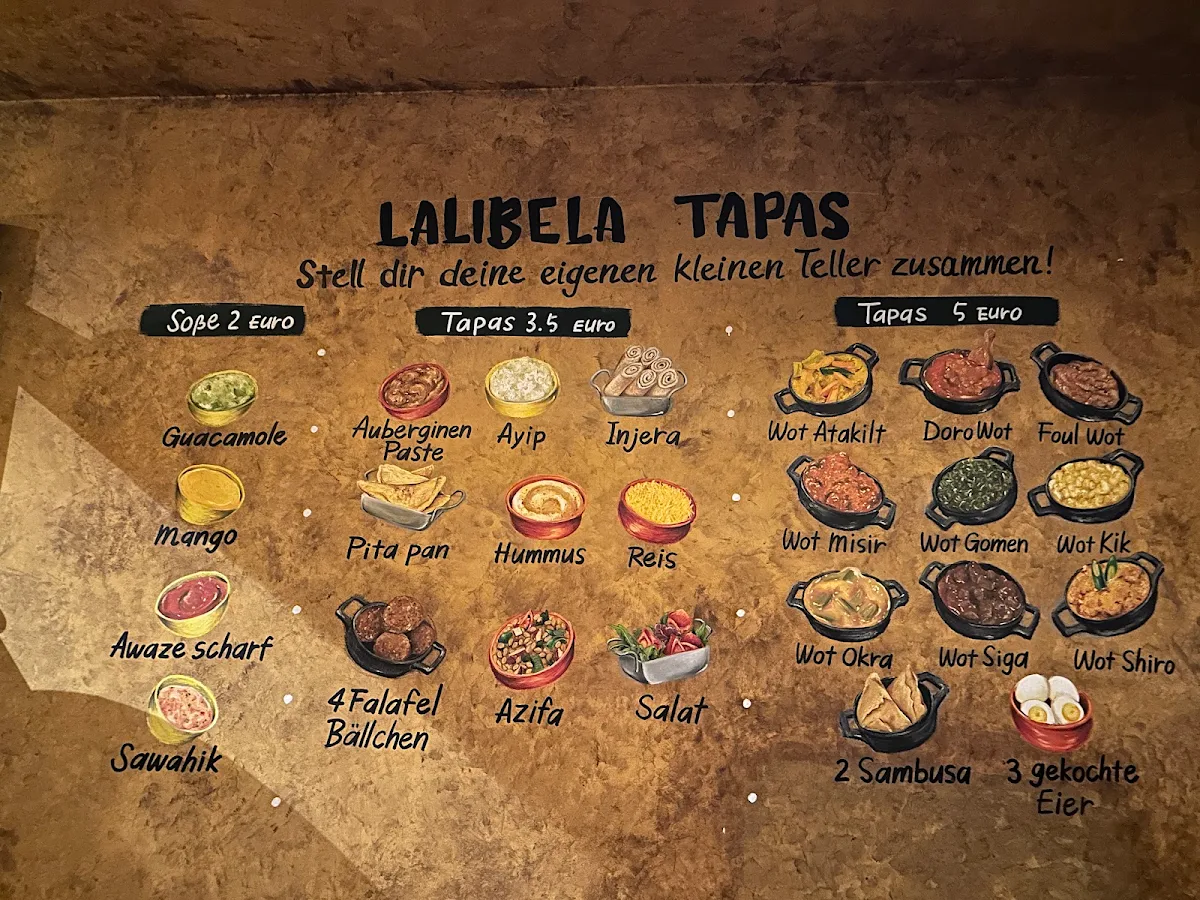 LALIBELA TAPAS
Stell dir deine eigenen kleinen Teller zusammen!
Soße 2 EURO
Guacamole
Mango
Awaze scharf
Sawahik
Tapas 3.5 EURO
Auberginen
Paste
Ayip
Injera
Pita pan
Hummus
Reis
4 Falafel
Bällchen
Azifa
Salat
Tapas 5 EURO
Wot Atakilt
Doro Wot
Foul Wot
Wot Misir
Wot Gomen
Wot Kik
Wot Okra
Wot Siga
Wot Shiro
2 Sambusa
3 gekochte
Eier